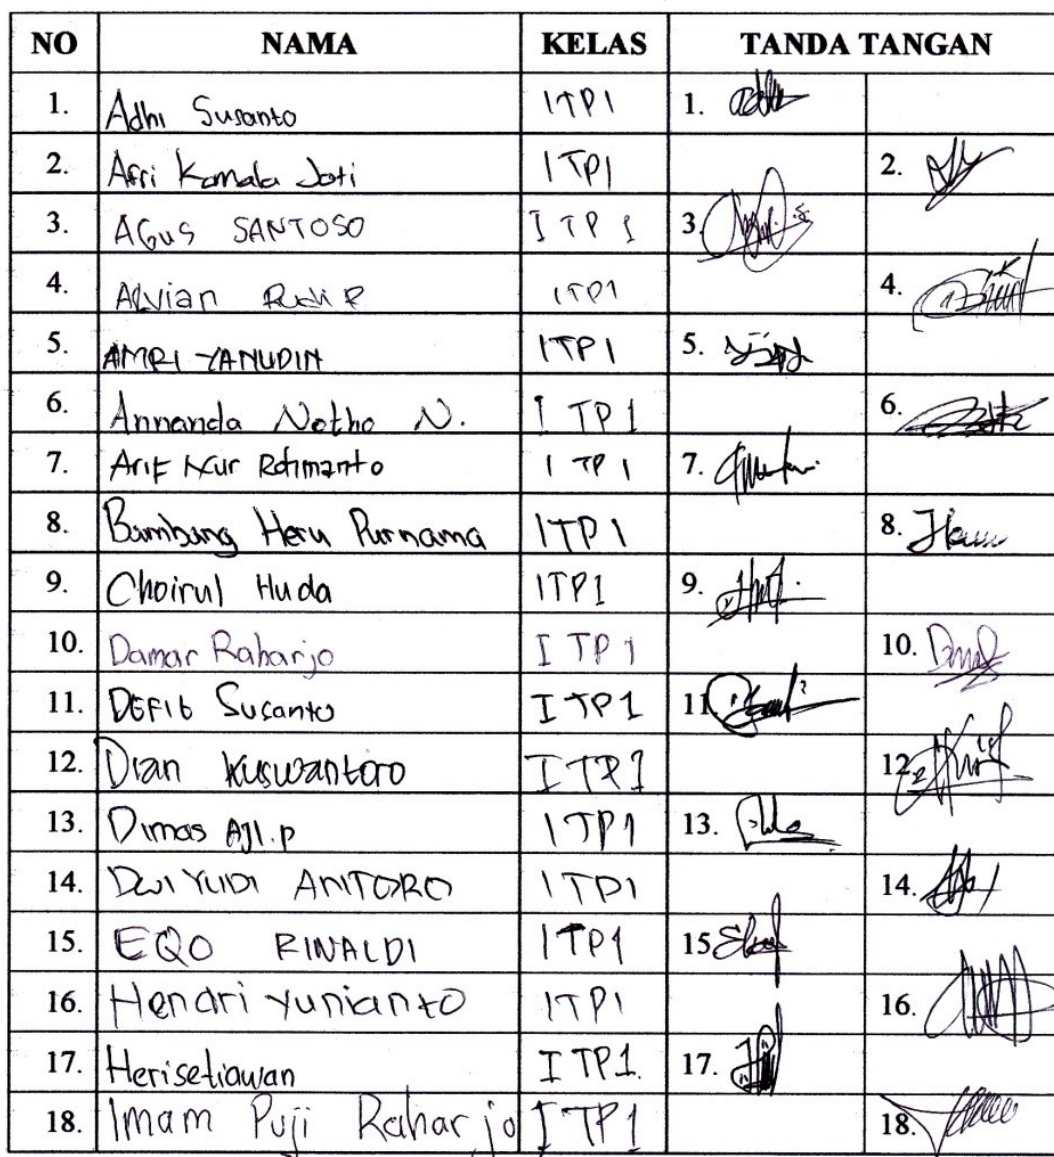 NO NAMA KELAS TANDA TANGAN
1. Adhi Susanto ITP1 1.
2. Afri Komala Jati ITP1 2.
3. AGUS SANTOSO I TP 1 3.
4. ALVian Rudi P ITP1 4.
5. AMRI YANUDIN ITP1 5.
6. Annanda Notho N. I TP1 6.
7. Arif Nur Rohmanto I TP 1 7.
8. Bambang Heru Purnama ITP1 8.
9. Choirul Huda ITP1 9.
10. Damar Raharjo I TP 1 10.
11. Susanto I TP1 11.
12. Dian Kuswantoro ITP1 12.
13. Dimas AJI.P ITP1 13.
14. DWI YUDI ANTORO ITP1 14.
15. EQO RINALDI ITP1 15
16. Hendri Yunianto ITP1 16.
17. Herisetiawan I TP1. 17.
18. Imam Puji Raharjo I TP1 18.